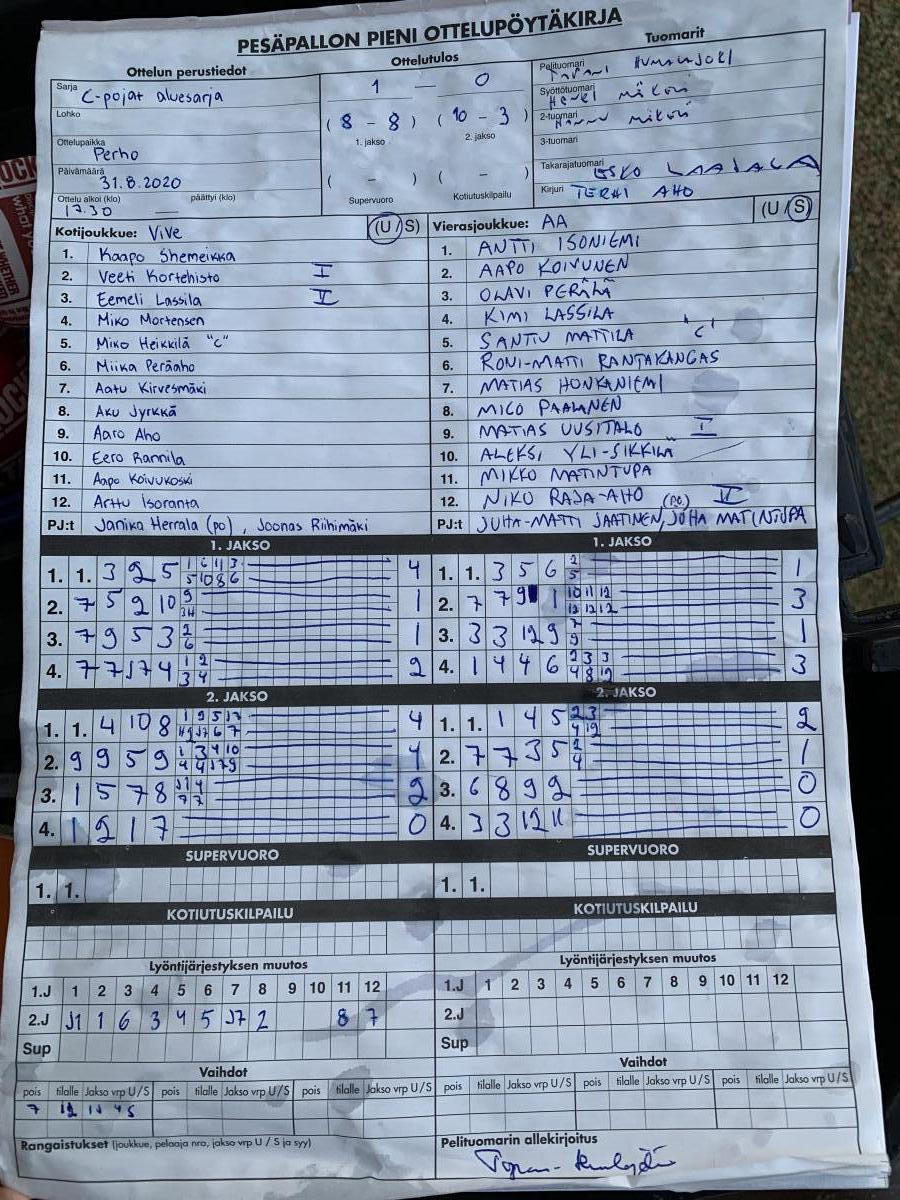 PESÄPALLON PIENI OTTELUPÖYTÄKIRJA
Ottelun perustiedot
Sarja C-pojat aluesarja
Lohko
Ottelupaikka Perho
Päivämäärä 31.8.2020
Ottelu alkoi (klo) päättyi (klo)
17.30 —
Ottelutulos
1 — 0
( 8 - 8 ) ( 10 - 3 )
1. jakso 2. jakso
( - ) ( - )
Supervuoro Kotiutuskilpailu
Tuomarit
Pelituomari
Syöttötuomari
2-tuomari
3-tuomari
Takarajatuomari ESKO
Kirjuri TERHI AHO
Kotijoukkue: ViVe (U/S)
1. Kaapo Shemeikka
2. Veeti Kortehisto I
3. Eemeli Lassila V
4. Miko Mortensen
5. Miko Heikkilä "C"
6. Miika Peräaho
7. Aatu Kirvesmäki
8. Aku Jyrkkä
9. Aaro Aho
10. Eero Rannila
11. Aapo Koivukoski
12. Arttu Isoranta
PJ:t Janika Herrala (po), Joonas Riihimäki
Vierasjoukkue: AA (U/S)
1. ANTTI ISONIEMI
2. AAPO KOIVUNEN
3. OLAVI PERÄLÄ
4. KIMI LASSILA
5. SANTTU MATTILA "C"
6. RONI-MATTI RANTAKANGAS
7. MATIAS HONKANIEMI
8. MICO PAALANEN
9. MATIAS UUSITALO I
10. ALEKSI YLI-SIKKILÄ
11. MIKKO MATINTUPA
12. NIKO RAJA-AHO (po) V
PJ:t JUHA-MATTI JAATINEN, JUHA MATINTUPA
1. JAKSO
1. 1. 3 2 5 4
2. 7 5 9 2 10 1
3. 7 9 5 3 1
4. 7 7 J7 4 2
1. JAKSO
1. 1. 3 5 6 1
2. 7 7 9 1 3
3. 3 3 12 9 1
4. 1 4 4 6 3
2. JAKSO
1. 1. 4 10 8 4
2. 9 9 5 9 4
3. 1 5 7 8 2
4. 1 2 1 7 0
2. JAKSO
1. 1. 1 4 5 2
2. 7 7 3 5 1
3. 6 8 9 2 0
4. 3 3 12 11 0
SUPERVUORO
1. 1.
SUPERVUORO
1. 1.
KOTIUTUSKILPAILU
KOTIUTUSKILPAILU
Lyöntijärjestyksen muutos
1.J 1 2 3 4 5 6 7 8 9 10 11 12
2.J J1 1 6 3 4 5 J7 2 8 7
Sup
Lyöntijärjestyksen muutos
1.J 1 2 3 4 5 6 7 8 9 10 11 12
2.J
Sup
Vaihdot
pois tilalle Jakso vrp U/S pois tilalle Jakso vrp U/S pois tilalle Jakso vrp U/S
7 12
Vaihdot
pois tilalle Jakso vrp U/S pois tilalle Jakso vrp U/S pois tilalle Jakso vrp U/S
Rangaistukset (joukkue, pelaaja nro, jakso vrp U / S ja syy)
Pelituomarin allekirjoitus